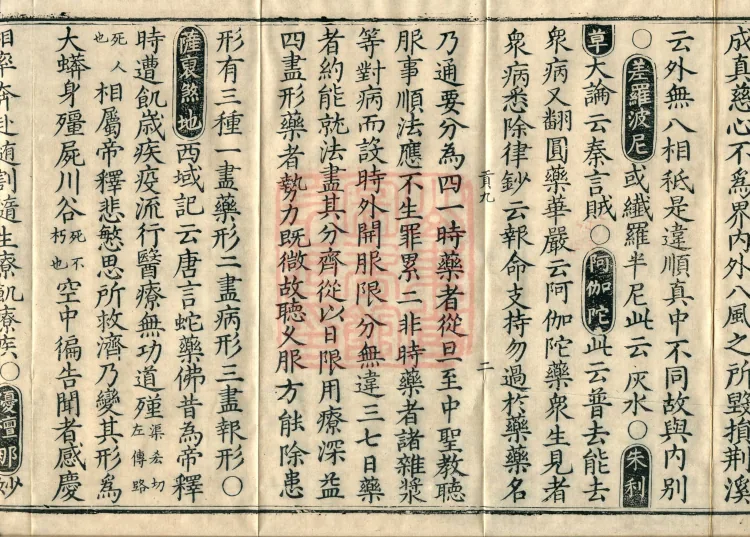 成真慈心不為界內外八風之所毀損荆溪
云外無八相秖是違順真中不同故與內別
○差羅波尼或纖羅半尼此云灰水○朱利
草大論云秦言賊○阿伽陀此云普去能去
衆病又翻圓藥華嚴云阿伽陀藥衆生見者
衆病悉除律鈔云報命支持勿過於藥藥名
貢九
二
乃通要分為四一時藥者從旦至中聖教聽
服事順法應不生罪累二非時藥者諸雜漿
等對病而設時外開服限分無違三七日藥
者約能就法盡其分齊從以日限用療深益
四盡形藥者勢力既微故聽久服方能除患
形有三種一盡藥形二盡病形三盡報形○
薩裒煞地西域記云唐言蛇藥佛昔為帝釋
時遭飢歲疾疫流行醫療無功道殣渠吝切左傳路
死人也相屬帝釋悲慜思所救濟乃變其形為
大蟒身殭屍川谷死不朽也空中徧告聞者感慶
相率奔赴隨割隨生療飢療疾○優曇那妙